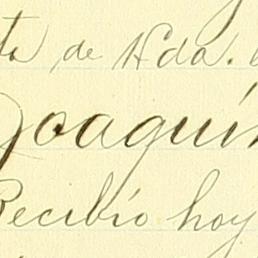 ta, de Hda.
Joaquín
Recibío hoy